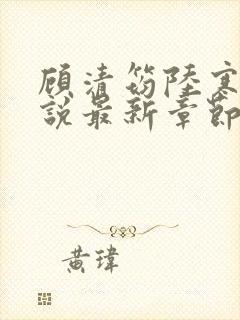 顧清笏陸寒
說最新章節
黃瑋